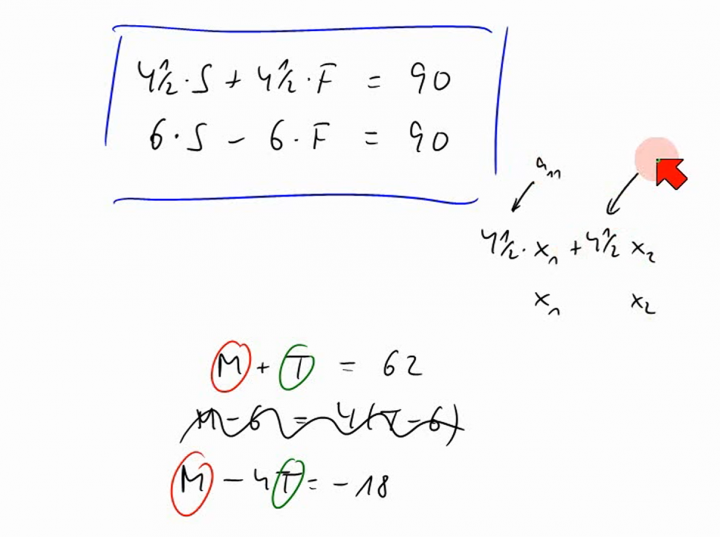 4½·S + 4½·F = 90
6·S − 6·F = 90
a₁₁
4½·x₁ + 4½ x₂
x₁ x₂
M + T = 62
M−6 = 4(T−6)
M − 4T = −18